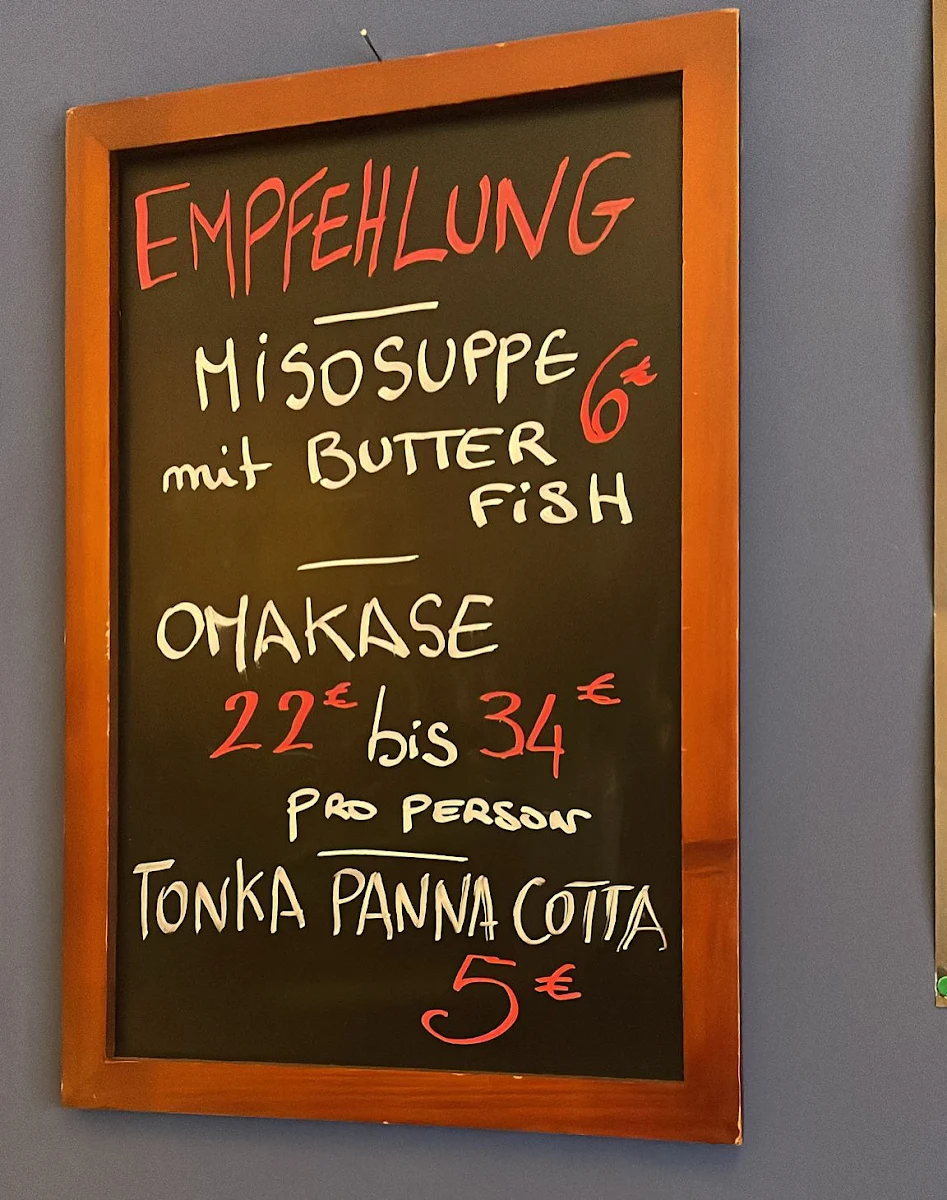 EMPFEHLUNG
MiSOSUPPE 6€
mit BUTTER
FiSH
OMAKASE
22€ bis 34€
PRO PERSON
TONKA PANNA COTTA
5€